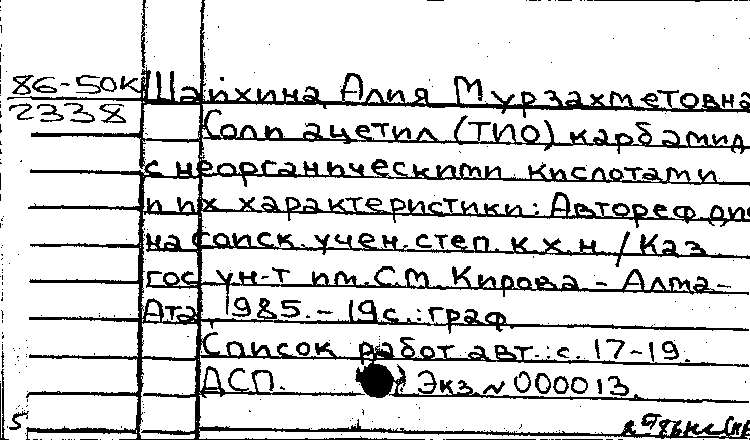 86-50К Шайхина, Алия Мурзахметовна
2338 Соли ацетил (тио) карбамид
с неорганическими кислотами
и их характеристики: Автореф. дис
на соиск. учен. степ. к. х. н. / Каз.
гос. ун-т им. С.М. Кирова - Алма-
Ата, 1985. - 19 с.: граф.
Список работ авт.: с. 17-19.
ДСП. Экз. № 000013.
5